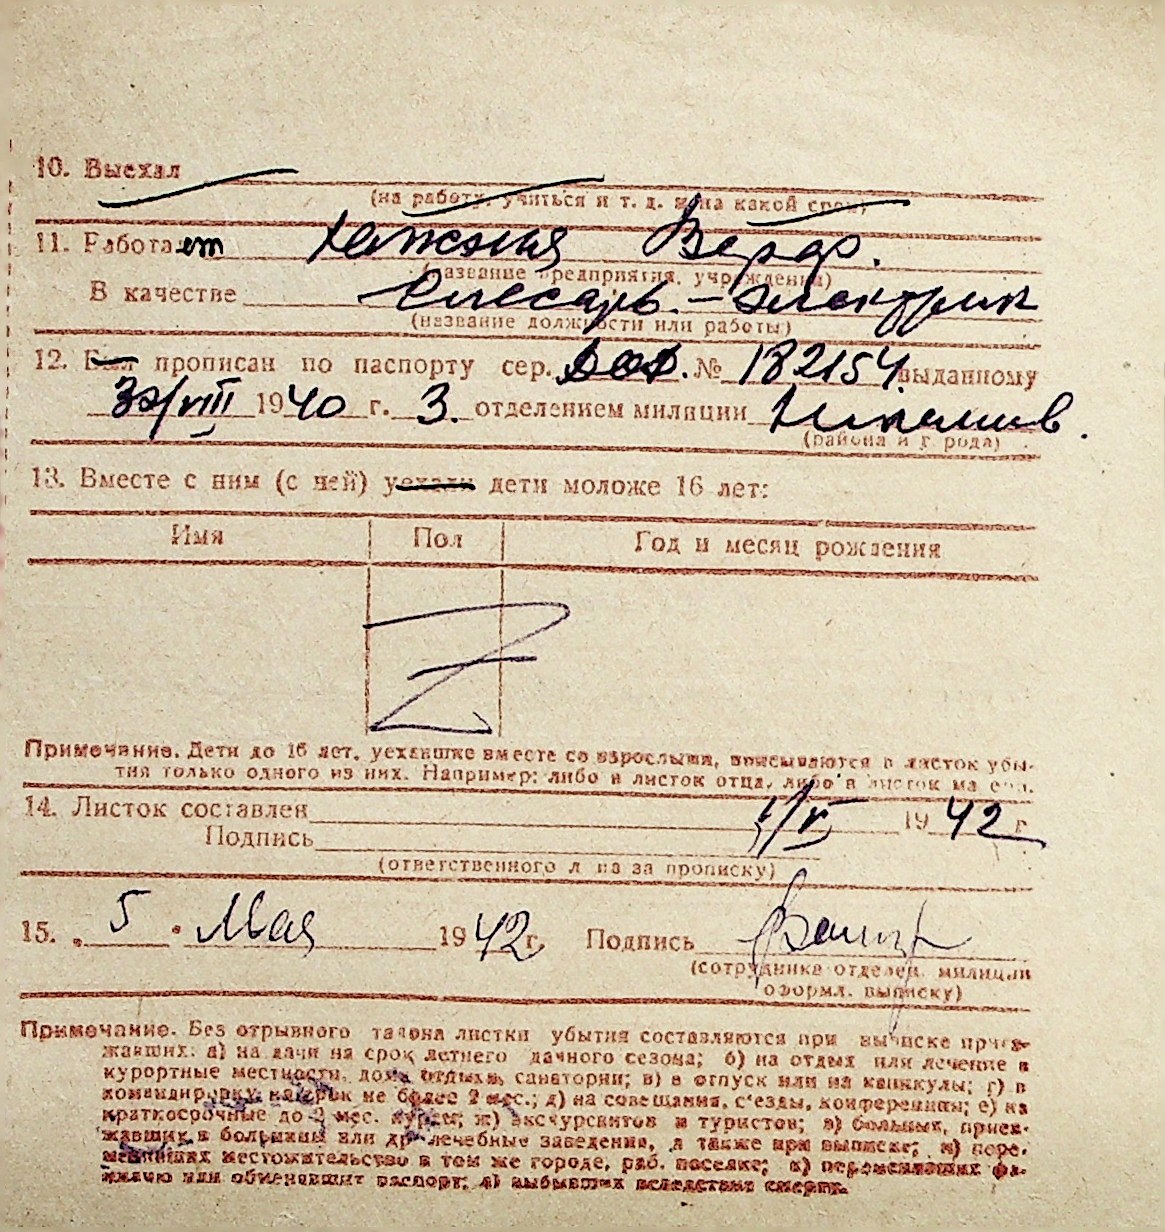 10. Выехал
(на работу, учиться и т. д. и на какой срок)
11. Работает
(название предприятия, учреждения)
В качестве Слесарь - электрик
(название должности или работы)
12. Был прописан по паспорту сер. № 182154 выданному
30/VIII 1940 г. 3. отделением милиции
(района и города)
13. Вместе с ним (с ней) уехали дети моложе 16 лет:
Имя Пол Год и месяц рождения
Примечание. Дети до 16 лет, уехавшие вместе со взрослыми, вписываются в листок убы-
тия только одного из них. Например: либо в листок отца, либо в листок матери.
14. Листок составлен 1942 г.
Подпись
(ответственного лица за прописку)
15. „ 5 " Мая 1942 г. Подпись
(сотрудника отделен. милиции
оформл. выписку)
Примечание. Без отрывного талона листки убытия составляются при выписке приез-
жавших: а) на дачи на срок летнего дачного сезона; б) на отдых или лечение в
курортные местности, дома отдыха, санатории; в) в отпуск или на каникулы; г) в
командировку на срок не более 2 мес.; д) на совещания, с'езды, конференции; е) на
краткосрочные до 2 мес. курсы; ж) экскурсантов и туристов; з) больных, приез-
жавших в больницы или др. лечебные заведения, а также при выписке; и) пере-
менивших местожительство в том же городе, раб. поселке; к) переменивших фа-
милию или обменявших паспорт; л) выбывших вследствие смерти.